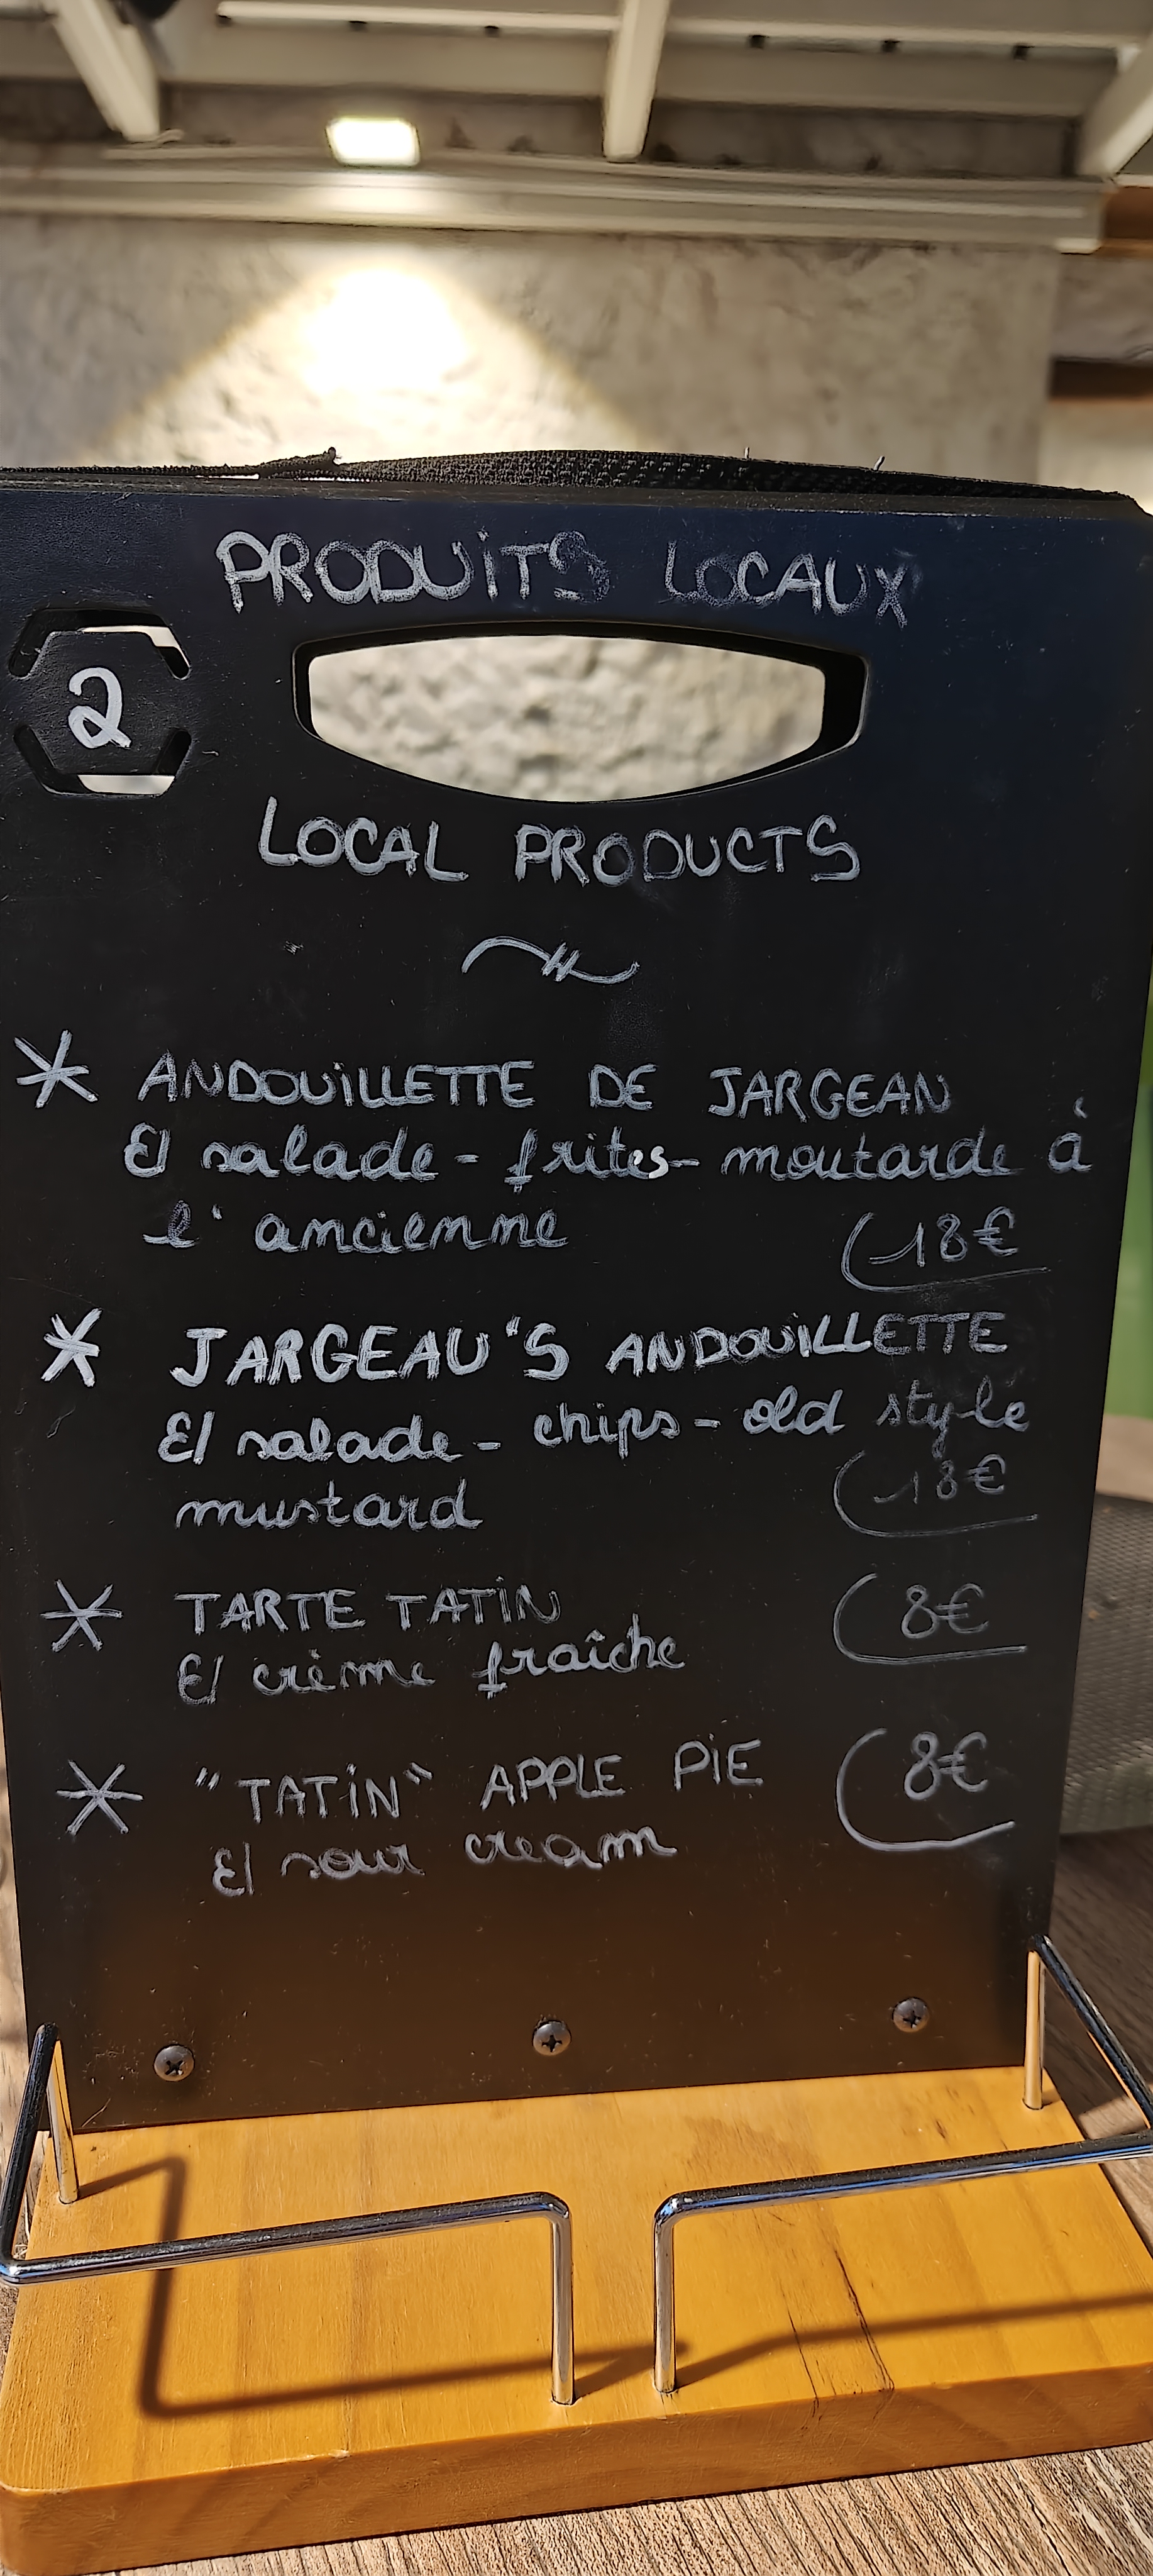 PRODUITS LOCAUX
2
LOCAL PRODUCTS
* ANDOUILLETTE DE JARGEAU
& salade - frites - moutarde à
l'ancienne 18€
* JARGEAU'S ANDOUILLETTE
& salade - chips - old style
mustard 18€
* TARTE TATIN 8€
& crème fraîche
* "TATIN" APPLE PIE 8€
& sour cream